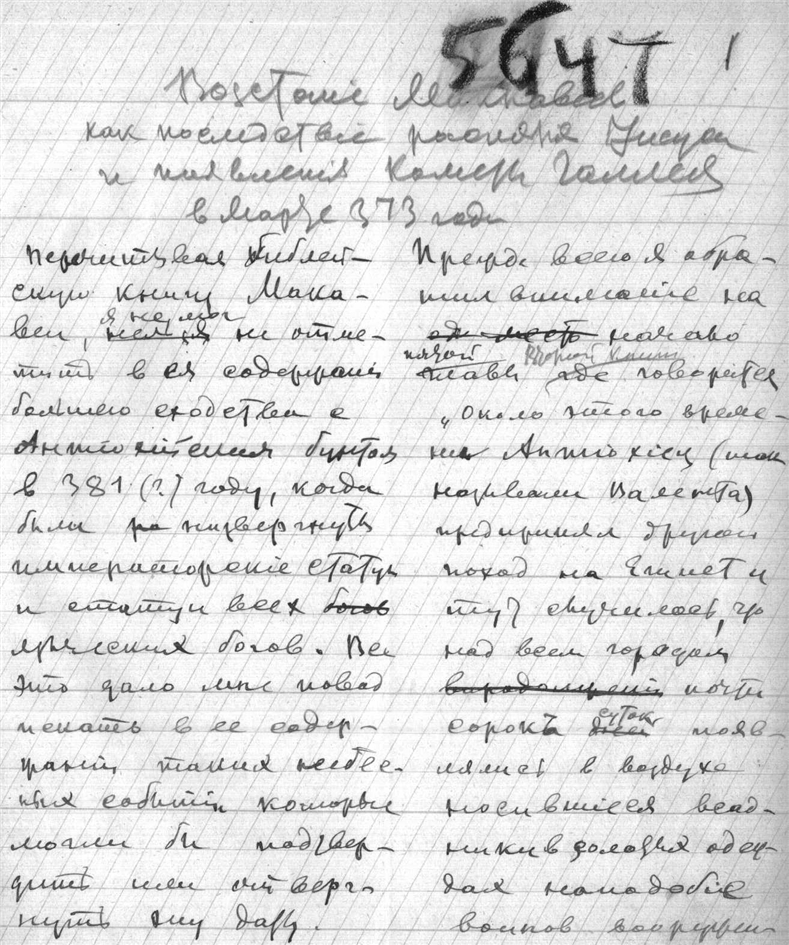 564т 1
Возстание Маккавеев
как последствие распятия Иисуса
и появления Кометы Галлея
в Марте 373 года
Перечитывая Библей-
скую книгу Мака-
веи, я не мог не отме-
тить в ея содержании
большого сходства с
Антиохийским бунтом
в 381 (?) году, когда
были низвергнуты
императорские статуи
и статуи всех богов
языческих богов. Все
это дало мне повод
искать в ее содер-
жании таких небес-
ных событий которые
могли бы подтвер-
дить или отверг-
нуть эту дату.
Прежде всего я обра-
тил внимание на
начало
пятой главы Второй книги где говорится
„около этого време-
ни Антиохиец (так
называли Валента)
предпринял другой
поход на Египет и
тут случилось, что
над всем городом
почти
сорок суток появ-
лялись в воздухе
носившиеся всад-
ники в золотых одеж-
дах наподобие
воинов вооружен-